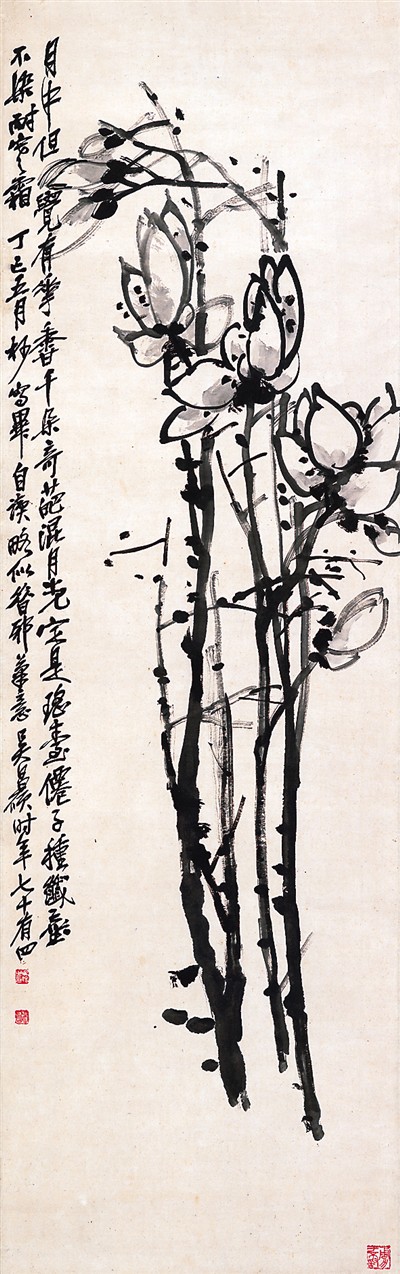 月中但覺有香千朵奇葩混月光定是瑤臺僊子種纖塵
不染耐寒霜 丁巳五月杪寫畢自讀略似筆意 吳昌碩時年七十有四